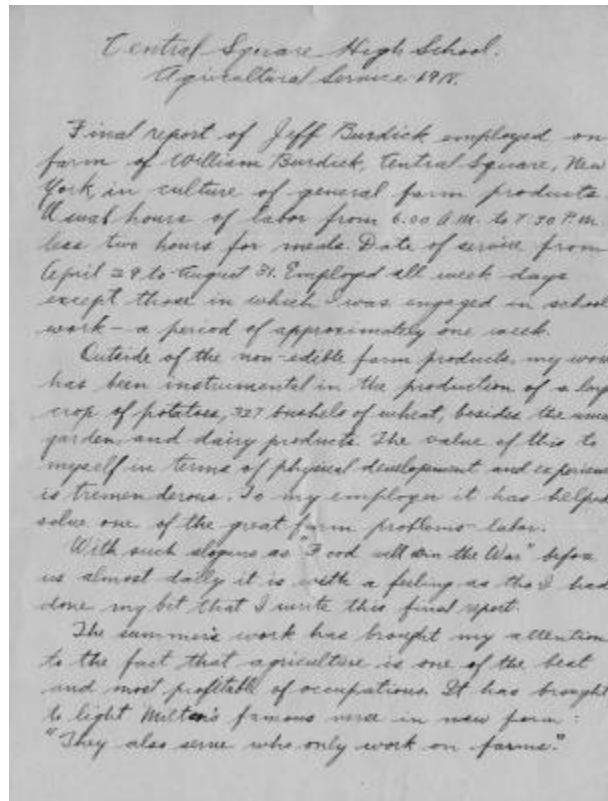 Central Square High School.
Agricultural Service 1918.
Final report of Jeff Burdick employed on
farm of William Burdick, Central Square, New
York, in culture of general farm products.
Usual hours of labor from 6.00 A.M. to 7.30 P.M.
less two hours for meals. Date of service from
April 29 to August 31. Employed all week-days
except those in which I was engaged in school
work - a period of approximately one week.
Outside of the non-edible farm products, my work
has been instrumental in the production of a large
crop of potatoes, bushels of wheat, besides the usual
garden and dairy products. The value of this to
myself in terms of physical development and experience
is tremenderous. To my employer it has helped
solve one of the great farm problems - labor.
With such slogans as "Food will win the War" before
us almost daily it is with a feeling as tho I had
done my bit that I write this final report.
The summer's work has brought my attention
to the fact that agriculture is one of the best
and most profitable of occupations. It has brought
to light Milton's famous verse in new form:
"They also serve who only work on farms."